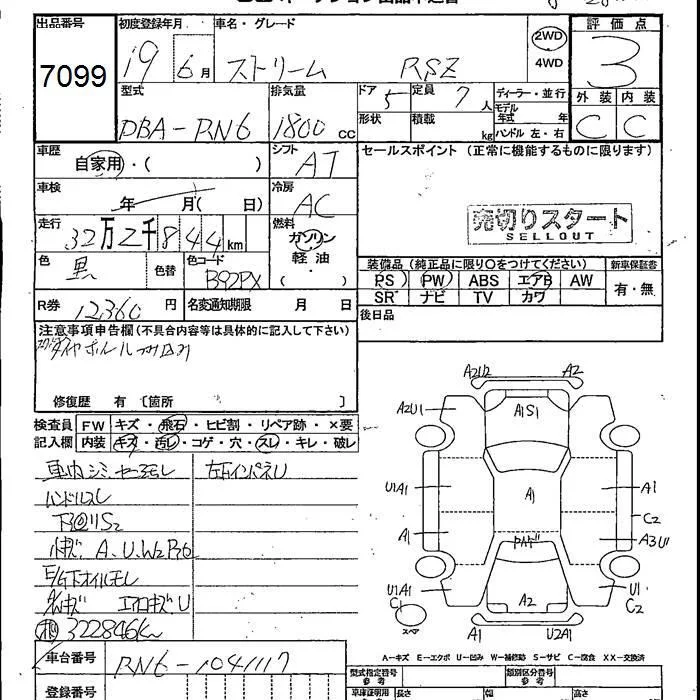 出品番号
7099
初度登録年月
19 6月
車名・グレード
ストリーム RSZ
2WD
4WD
評価点
3
外装 内装
C C
型式
DBA-RN6
排気量
1800 cc
ドア
5
定員
7人
形状
積載 kg
ディーラー・並行
モデル年式 年
ハンドル 左・右
車歴
自家用・( )
シフト
AT
セールスポイント (正常に機能するものに限ります)
車検
年 月( 日)
冷房
AC
走行
32万2千844km
燃料
ガソリン
軽油
( )
売切りスタート
SELLOUT
色
黒
色替
色コード
B92PX
装備品(純正品に限り○をつけてください)
PS PW ABS エアB AW
SR ナビ TV カワ
新車保証書
有・無
R券 12,360円
名変通知期限 月 日
後日品
注意事項申告欄(不具合内容等は具体的に記入して下さい)
修復歴 有 〔箇所 〕
検査員記入欄
FW キズ・飛石・ヒビ割・リペア跡・×要
内装 キズ・汚レ・コゲ・穴・スレ・キレ・破レ
ハンドルスレ
A.U.W2
E/G下オイルモレ
322846km
車台番号
RN6-1041117
登録番号
A2U2 A2
A2U1 A1S1
U1A1 A1 A1
C2
A1 A3U1
U1A1 U1
C1 A2 C2
スペア
A1 U2A1
A-キズ E-エクボ U-凹み W-補修跡 S-サビ C-腐食 XX-交換済
型式指定番号
参考
類別区分番号
参考
車庫証明用
長さ 幅 高さ